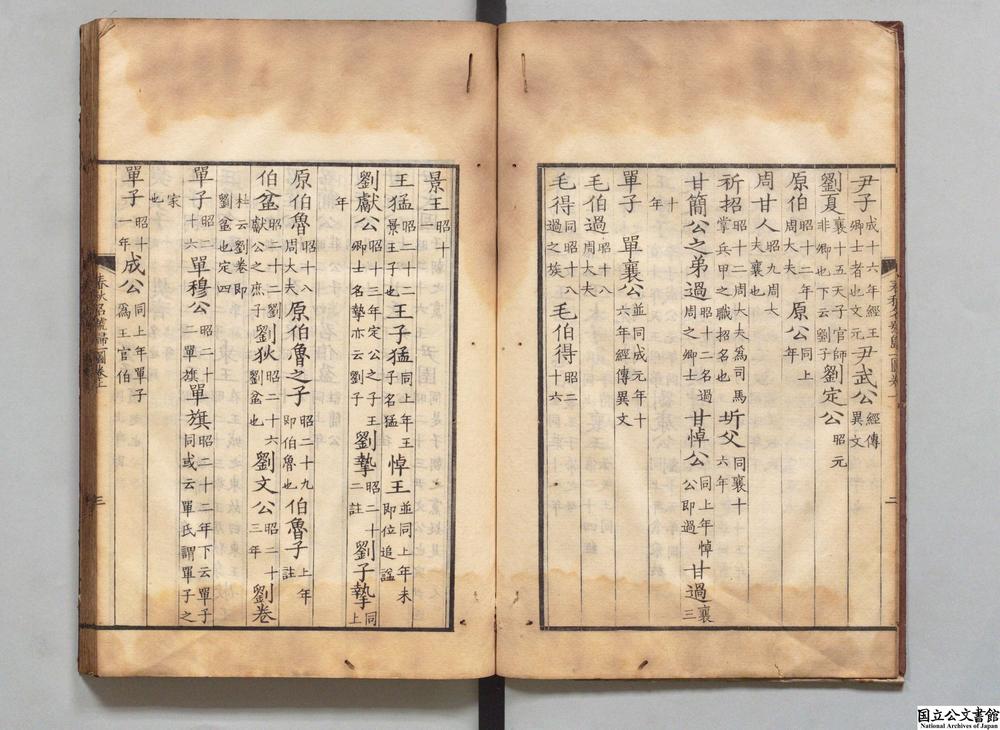 尹子成十六年經王卿士者也文元尹武公經傳異文
劉夏襄十五天子官師劉非卿也下云劉子劉定公昭元
原伯昭十二年周大夫原公同上年
周甘人昭九周大夫襄也
祈招昭十二周大夫爲司馬掌兵甲之職招名也圻父同襄十六年
甘簡公之弟過昭十二名過周之卿士甘悼公同上年悼公即過甘過襄三
十年
單子單襄公並同成元年十六年經傳異文
毛伯過昭十八周大夫
毛得同昭十八過之族毛伯得昭二十六
二
景王昭十一
王猛昭二十二景王子也王子猛同上年王子名猛悼王並同上年未即位追諡
劉獻公昭十三年定公之子王卿士名摯亦云劉子劉摯昭二十二註劉子摯同上
年
原伯魯昭十八周大夫原伯魯之子昭二十九即伯魯也伯魯子上年註
伯盆昭二十二劉獻公之庶子劉狄昭二十六劉盆也劉文公昭二十三年劉卷
杜云劉卷即劉盆也定四
單子昭二十六單穆公昭二十二單旗單旗昭二十二年下云單子同或云單氏謂單子之
家也
單子昭十一年成公同上年單子爲王官伯
春秋名號歸一圖卷上
三
国立公文書館
National Archives of Japan